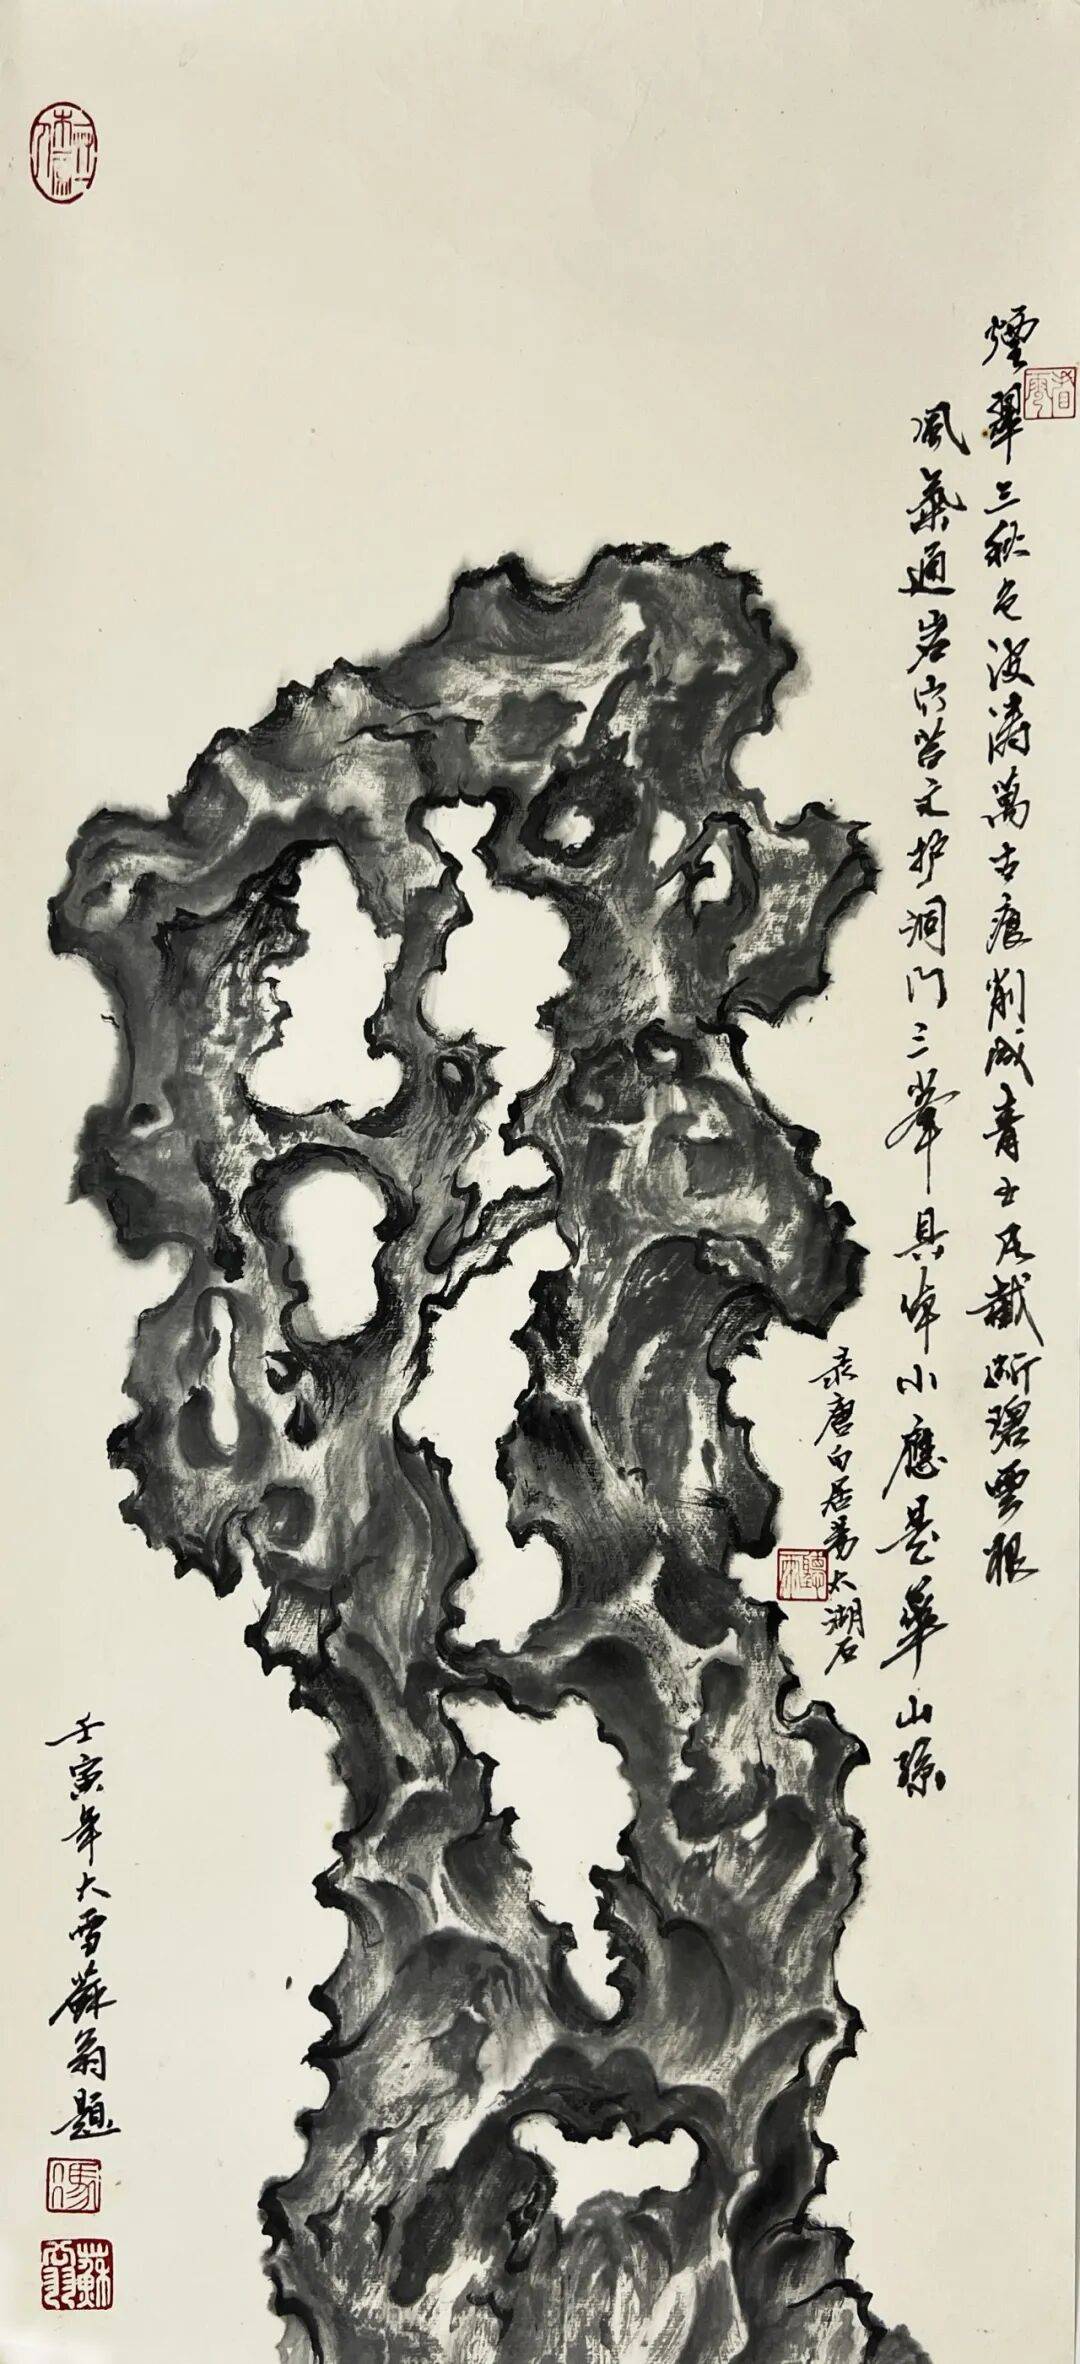 煙翠三秋色波濤萬古痕削成青玉片截断碧雲根
風氣通岩穴苔文护洞门三峯具体小應是華山孫
录唐白居易太湖石
聽雨
壬寅年大雪蘇翁題
馮
蘇翁